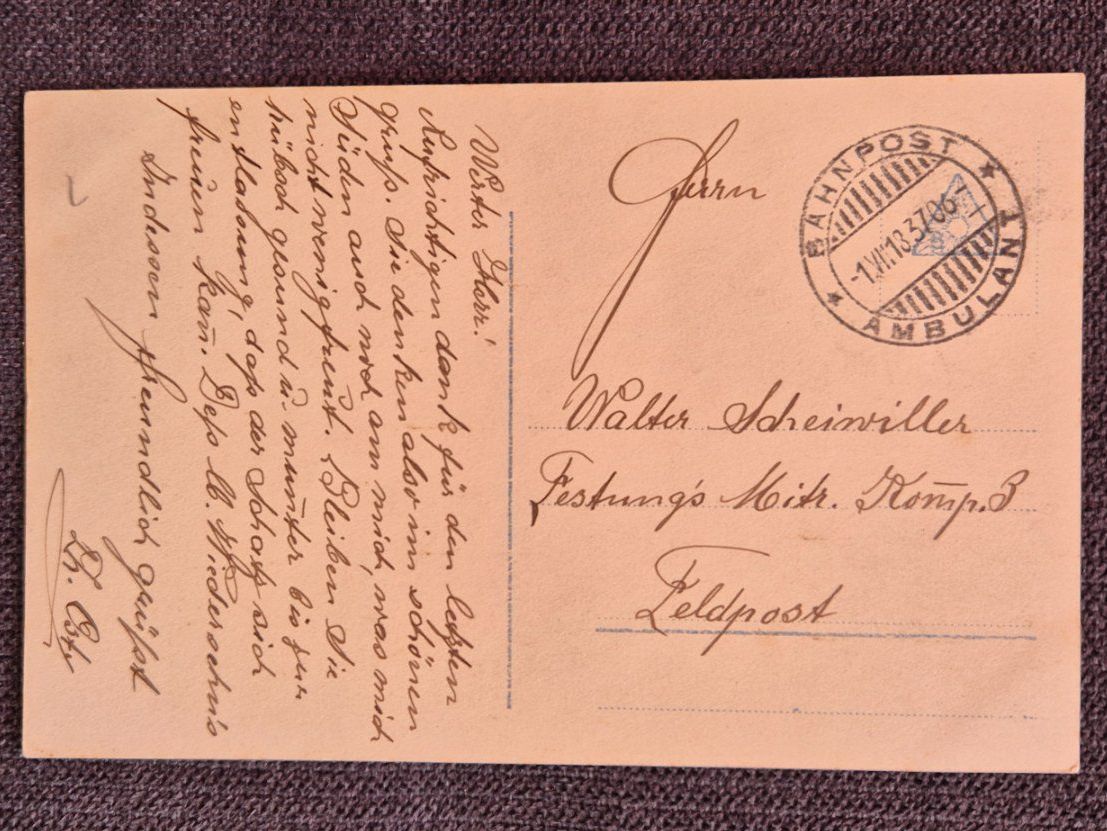 Werter Herr!
Aufrichtigen dank für den letzten
gruß. Sie denken also im schönen
Süden auch noch an mich, was mich
nicht wenig freut. Bleiben Sie
hübsch gesund u. munter bis zur
entlaßung, daß der Schatz sich
freuen kan̄. Wiedersehn's
Indessen freundlich grüßt
Herrn
Walter Scheiwiller
Festung's Mitr. Kom̄p. 3
Feldpost
BAHNPOST
-1.VII.18. 3706-
AMBULANT